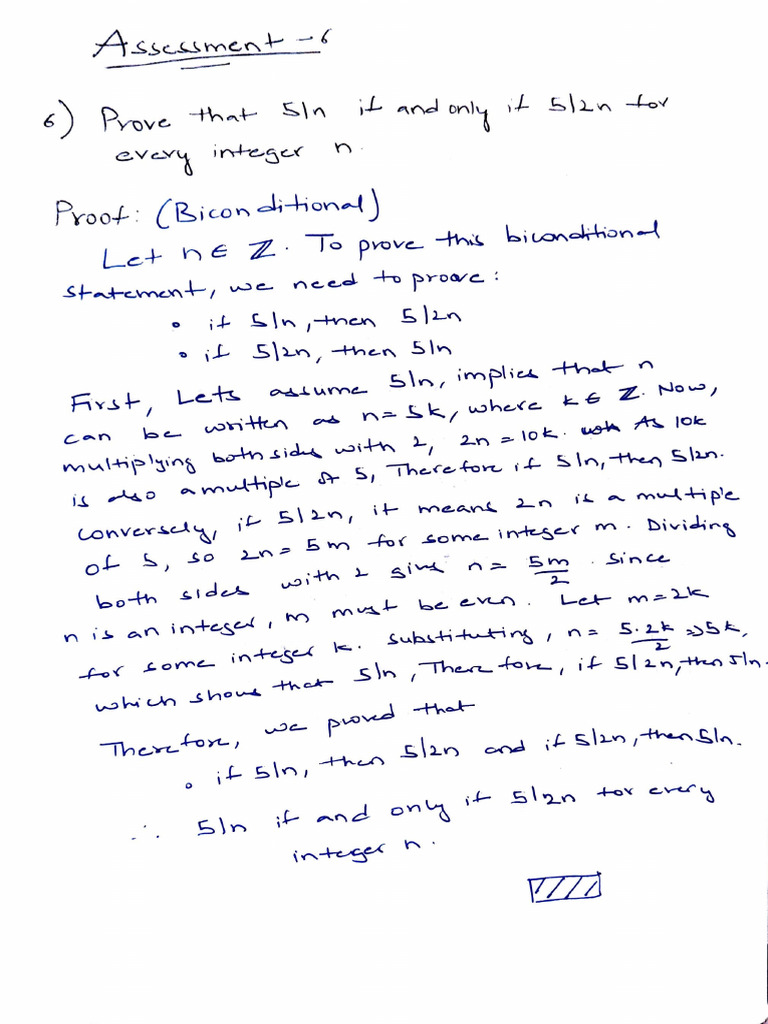 Assessment - 6
6) Prove that 5|n if and only if 5|2n for
every integer n.
Proof: (Biconditional)
Let n ∈ ℤ. To prove this biconditional
statement, we need to proove:
• if 5|n, then 5|2n
• if 5|2n, then 5|n
First, Lets assume 5|n, implies that n
can be written as n = 5k, where k ∈ ℤ. Now,
multiplying both sides with 2, 2n = 10k. As 10k
is also a multiple of 5, Therefore if 5|n, then 5|2n.
conversely, if 5|2n, it means 2n is a multiple
of 5, so 2n = 5m for some integer m. Dividing
both sides with 2 gives n = 5m/2. since
n is an integer, m must be even. Let m = 2k
for some integer k. substituting, n = 5·2k/2 => 5k,
which shows that 5|n, Therefore, if 5|2n, then 5|n.
Therefore, we proved that
• if 5|n, then 5|2n and if 5|2n, then 5|n.
∴ 5|n if and only if 5|2n for every
integer n.